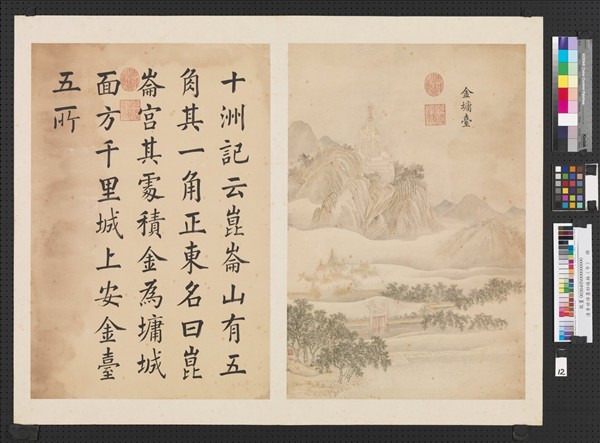 金墉臺
十洲記云崑崙山有五
角其一角正東名曰崑
崙宮其處積金為墉城
面方千里城上安金臺
五所
12